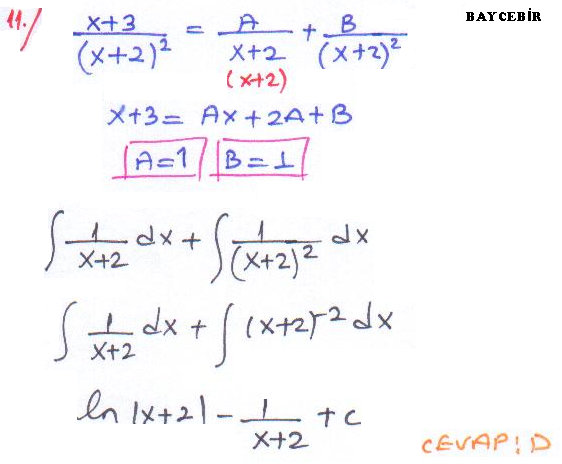 11./ x+3/(x+2)² = A/x+2 + B/(x+2)² BAYCEBİR
(x+2)
x+3 = Ax+2A+B
A=1 B=1
∫ 1/x+2 dx + ∫ 1/(x+2)² dx
∫ 1/x+2 dx + ∫ (x+2)⁻² dx
ln |x+2| - 1/x+2 + c
CEVAP: D